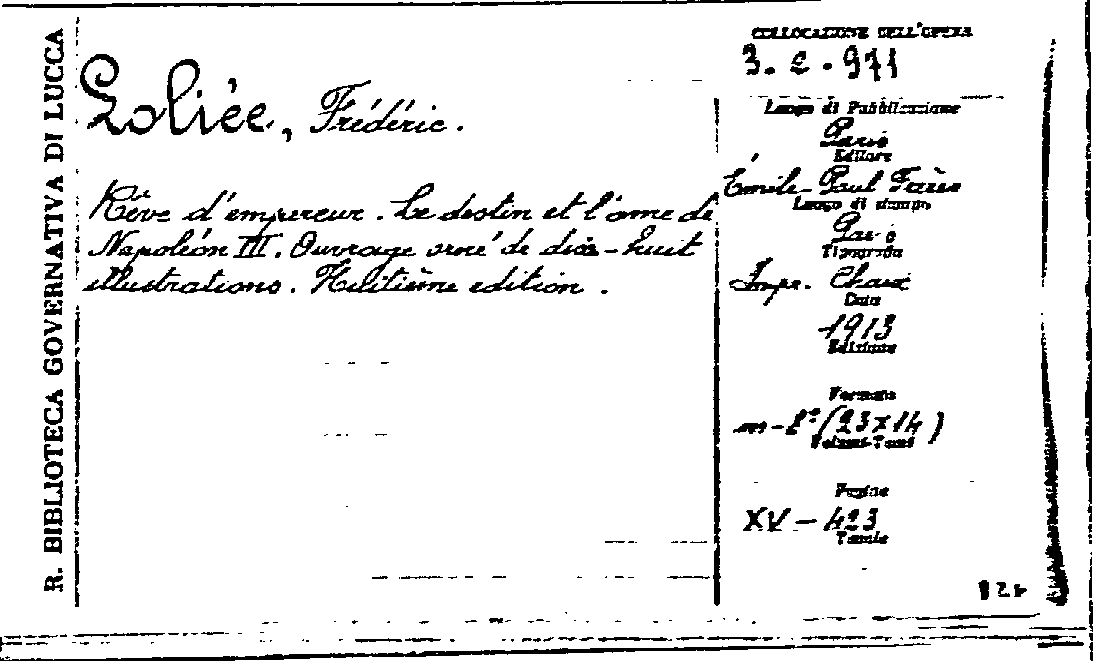 R. BIBLIOTECA GOVERNATIVA DI LUCCA
Loliée, Frédéric.
Rêve d'empereur. Le destin et l'âme de
Napoléon III. Ouvrage orné de dix-huit
illustrations. Huitième edition.
COLLOCAZIONE DELL'OPERA
3. e. 971
Luogo di Pubblicazione
Paris
Editore
Émile-Paul Frères
Luogo di stampa
Paris
Tipografia
Impr. Chaix
Data
1913
Edizione
Formato
in-8° (23x14)
Volumi-Tomi
Pagine
XV - 423
Tavole